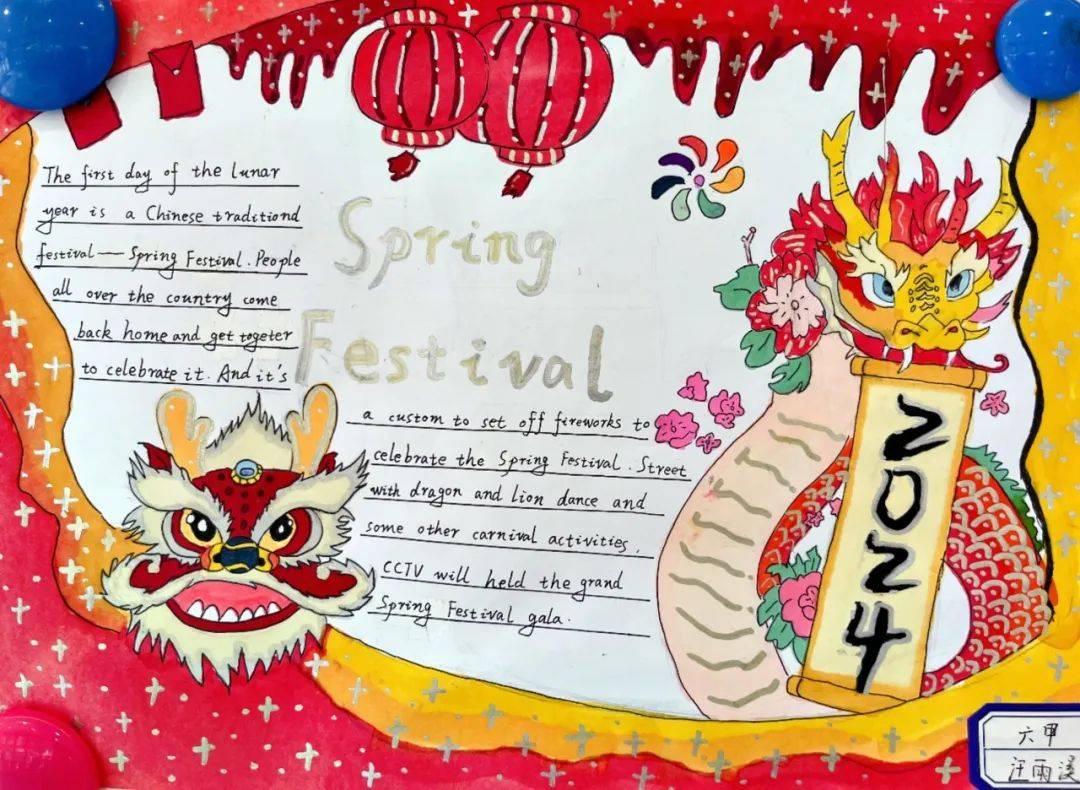 Spring
Festival
The first day of the lunar
year is a Chinese traditiond
festival — Spring Festival. People
all over the country come
back home and get togeter
to celebrate it. And it's
a custom to set off fireworks to
celebrate the Spring Festival. Street
with dragon and lion dance and
some other carnival activities,
CCTV will held the grand
Spring Festival gala.
2024
六甲
汪雨溪